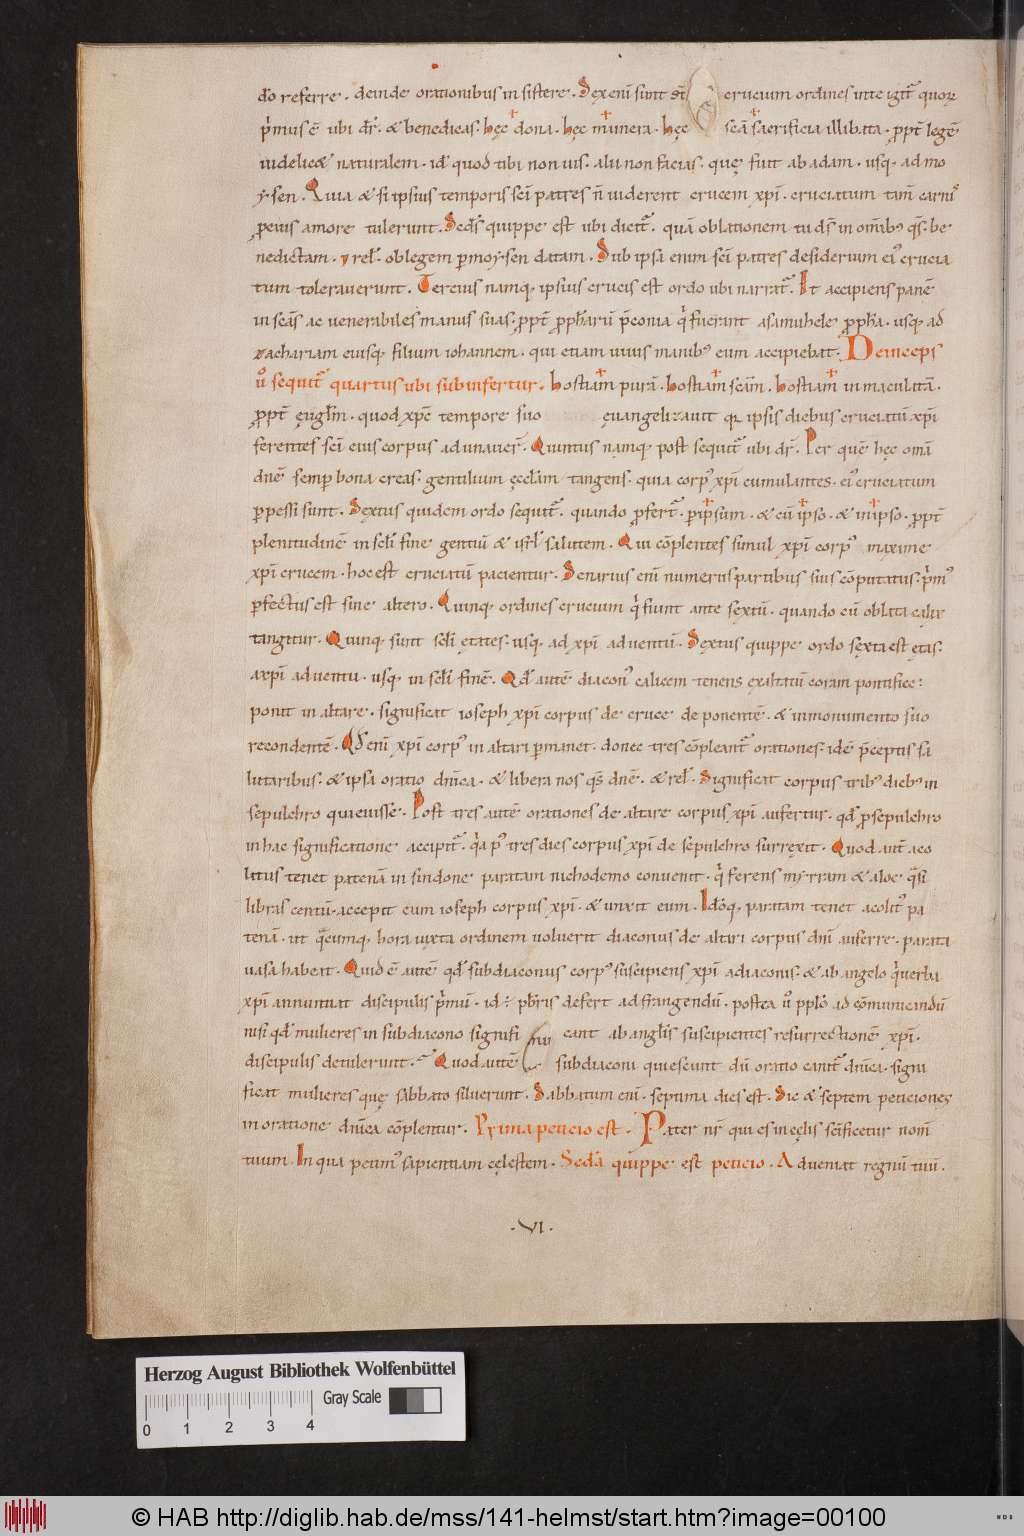 do referre. deinde orationibus insistere. Sex enī sunt crucium ordines ut te igit̄ quoꝝ
p̄mus ē ubi dr̄. & benedicas. hęc dona. hęc munera. hęc sc̄a sacrificia illibata. ꝓpt̄ legē
uidelic& naturalem. id ÷ quod tibi non uis. alii non facias. quę fuit ab adam. usq; ad mo
ysen. Quia & si ipsius temporis sc̄i patres n̄ uiderent crucem xp̄i. cruciatum tam̄ carnis
ꝓ eius amore tulerunt. Sc̄ds quippe est ubi dicit̄. quā oblationem tu ds̄ in omīb; qs̄. be
nedictam. & rel̄. ob legem ꝑ moysen datam. Sub ipsa enim sc̄i patres desiderium ei' crucia
tum tolerauerunt. Tercius namq; ipsius crucis est ordo ubi narrat̄. It accipiens panē
in sc̄as ac uenerabiles manus suas. ꝓpt̄ ꝓph̄arū p̄conia q̄ fuerunt a samuhele ꝓph̄a. usq; ad
zachariam eiusq; filium iohannem. qui etiam uiuis manib; eum accipiebat. Deinceps
ů sequit̄ quartus ubi subinfertur. hostiam purā. hostiam sc̄am. hostiam inmaculatā.
ꝓpt̄ ęuḡlm. quod xp̄c tempore suo ęuangelizauit qꝛ ipsis diebus cruciatū xp̄i
ferentes sc̄i eius corpus adunauer̄. Quintus namq; post sequit̄ ubi dr̄. Per quē hęc om̄a
dn̄e semꝑ bona creas. gentilium ęccl̄am tangens. quia corp' xp̄i cumulantes. ei' cruciatum
ꝑpessi sunt. Sextus quidem ordo sequit̄. quando ꝓfert̄. ꝑ ipsum. & cū ipso. & in ipso. ꝓpt̄
plenitudinē in sc̄li fine gentiū & isr̄l salutem. Qui cōplentes simul xp̄i corp' maxime
xp̄i crucem. hoc est cruciatū pacientur. Senarius enī numerus partibus suis cōputatus. p̄m'
ꝑfectus est sine altero. Quinq; ordines crucium q̄ fiunt ante sextū. quando cū oblata calix
tangitur. Quinq; sunt sc̄li ętates. usq; ad xp̄i aduentū. Sextus quippe ordo sexta est ętas.
a xp̄i aduentu. usq; in sc̄li finē. Qd̄ autē diacon' calicem tenens exaltatū coram pontifice:
ponit in altare. significat ioseph xp̄i corpus de cruce deponentē. & in monumento suo
recondentē. Qd̄ enī xp̄i corp' in altari ꝑmanet. donec tres cōpleant̄ orationes. id ē p̄ceptis sa
lutaribus. & ipsa oratio dn̄ica. & libera nos qs̄ dn̄e. & rel̄. Significat corpus trib; dieb; in
sepulchro quieuisse. Post tres autē orationes de altare corpus xp̄i aufertur. qd̄ ꝓ sepulchro
in hac significatione accipit̄. q̄a p' tres dies corpus xp̄i de sepulchro surrexit. Quod aut̄ aco
litus tenet patenā in sindone paratam nichodemo conuenit. q̄ ferens myrram & aloe. q̄si
libras centū. accepit cum ioseph corpus xp̄i. & unxit eum. Idcōq; paratam tenet acolit' pa
tenā. ut q̄cumq; hora iuxta ordinem uoluerit diaconus de altari corpus dn̄i auferre. parata
uasa habeat. Quid ē autē qd̄ subdiaconus corp' suscipiens xp̄i a diaconis. & ab angelo q̄ uerba
xp̄i annuntiat discipulis p̄mū. id ÷ pbr̄is defert ad frangendū. postea ů ppl̄o ad cōmunicandū
nisi qd̄ mulieres in subdiacono significant ab anglis suscipientes resurrectionē xp̄i.
discipulis detulerunt. Quod autē subdiaconi quiescunt dū oratio canit̄ dn̄ica. signi
ficat mulieres quę sabbato siluerunt. Sabbatum enī. septima dies est. Sic & septem peticiones
in oratione dn̄ica cōplentur. Prima peticio est. Pater nr̄ qui es in cęlis sc̄ificetur nom̄
tuum. In qua petim' sapientiam cęlestem. Sc̄da quippe est peticio. Adueniat regnū tuū.
.VI.
Herzog August Bibliothek Wolfenbüttel
Gray Scale
0 1 2 3 4
© HAB http://diglib.hab.de/mss/141-helmst/start.htm?image=00100